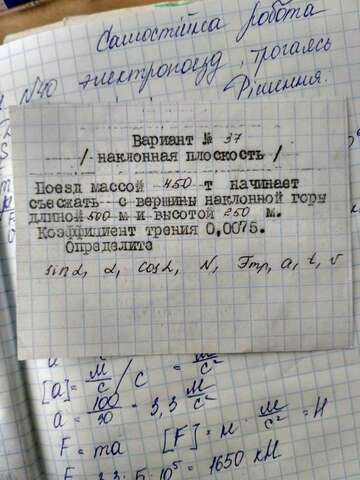 Самостійна робота
№40 электропоезд, трогаясь
Рішення.
Вариант № 37
/ наклонная плоскость /
Поезд массой 450 т начинает
съезжать с вершины наклонной горы
длиной 500 м и высотой 250 м.
Коэффициент трения 0,0075.
Определите
sin α, α, cos α, N, Fтр, a, t, v
[a] = м/с / с = м/с²
a = 100/30 = 3,3 м/с²
F = ma [F] = н · м/с² = Н
= 1650 кН